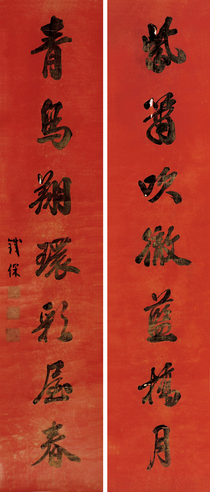 紫簫吹徹藍橋月
青鳥翔環彩屋春
鐵保